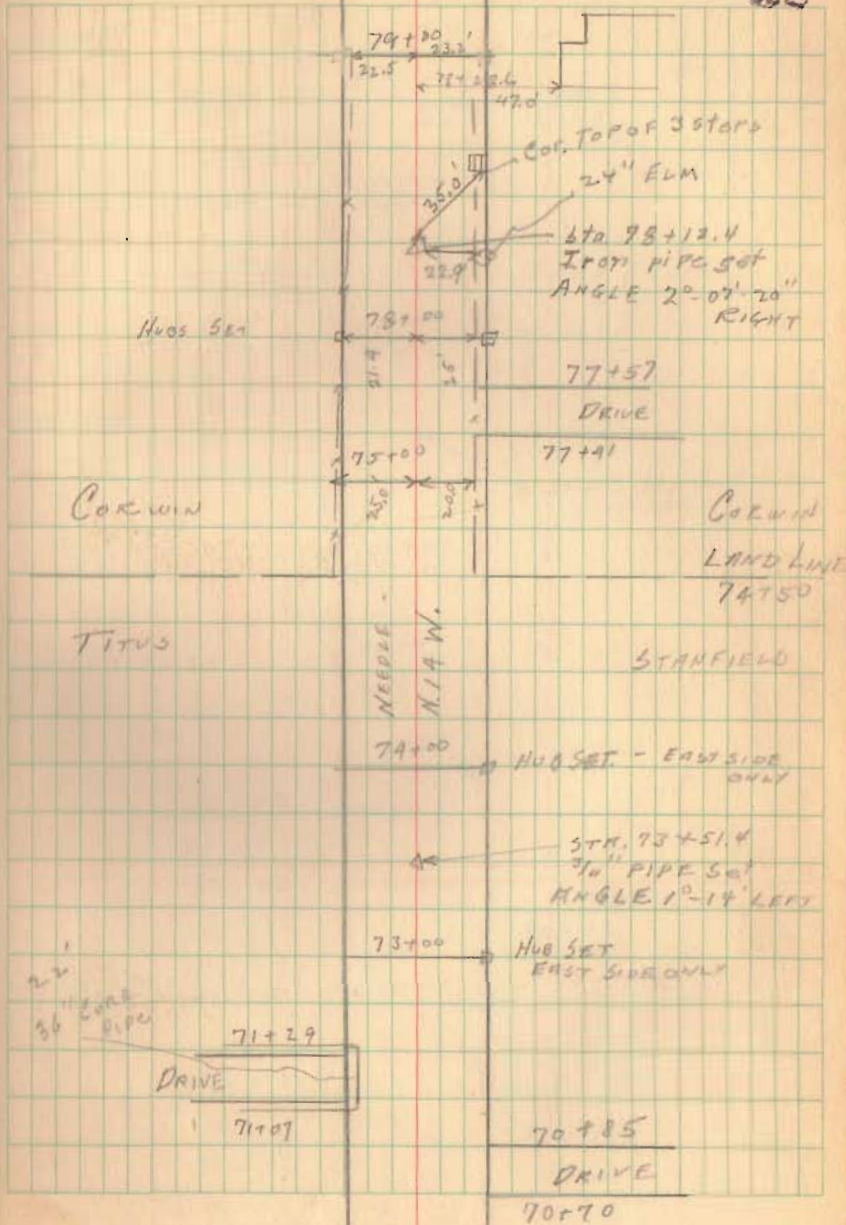 79+00
22.5 23.2'
47.0'
Cor. TOP OF 3 STEPS
35.0'
24" ELM
Sta 78+12.4
22.9
Iron pipe set
ANGLE 2°-07'-20"
RIGHT
HUBS SET
78+00
21.4 25'
77+57
DRIVE
77+41
75+00
25.0' 20.0
CORWIN
CORWIN
LAND LINE
74+50
TITUS
STANFIELD
NEEDLE -
N.14 W.
74+00
HUB SET. - EAST SIDE
ONLY
STA. 73+51.4
PIPE Set
ANGLE 1°-14' LEFT
73+00
HUB SET
EAST SIDE ONLY
22'
36" CORR
PIPE
71+29
DRIVE
71+07
70+85
DRIVE
70+70